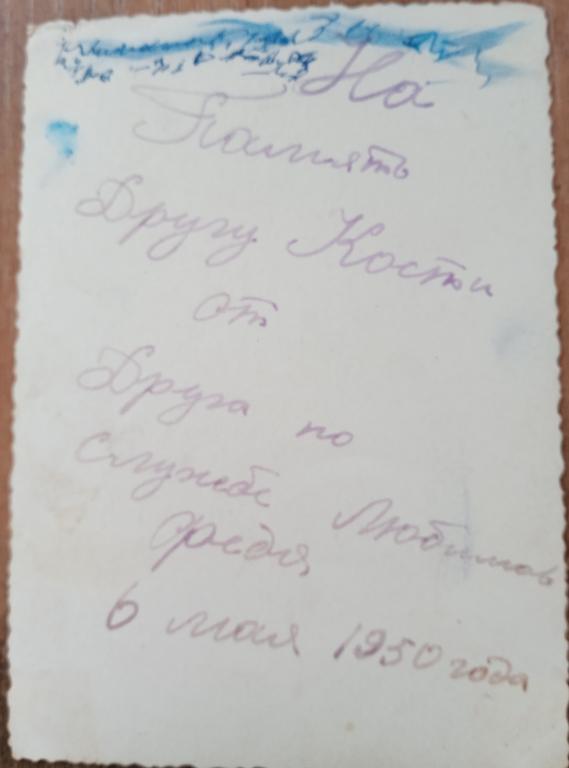 На
Память
Другу Костьи
от
Друга по
службе Любимов
Федя
6 мая 1950 года